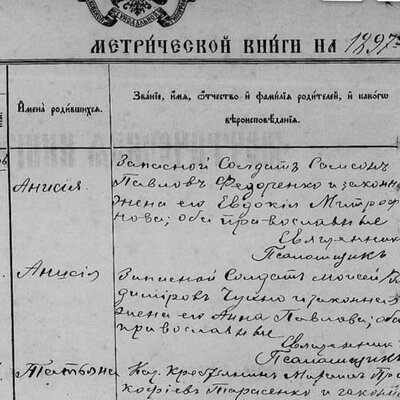 МЕТРИ́ЧЕСКОЙ КНИ́ГИ НА 1897
Имена̀ роди́вшихся.
Зва́ніе, и́мя, о́тчество и҆ фами́лія роди́телей, и҆ како́гѡ
вѣроисповѣ́данія.
Анисія.
Запасной Солдатъ Самсонъ
Павловъ Федоренко и законн
жена его Евдокія Митроф
нова; оба православные
Священник
Псаломщик
Анисія
Запасной Солдатъ Моисей
диміровъ и законна
жена его Анна Павлова; оба
православные
Священник
Псаломщик
Татьяна
Каз. Крестьянин Про
кофіевъ Тарасенко и законн